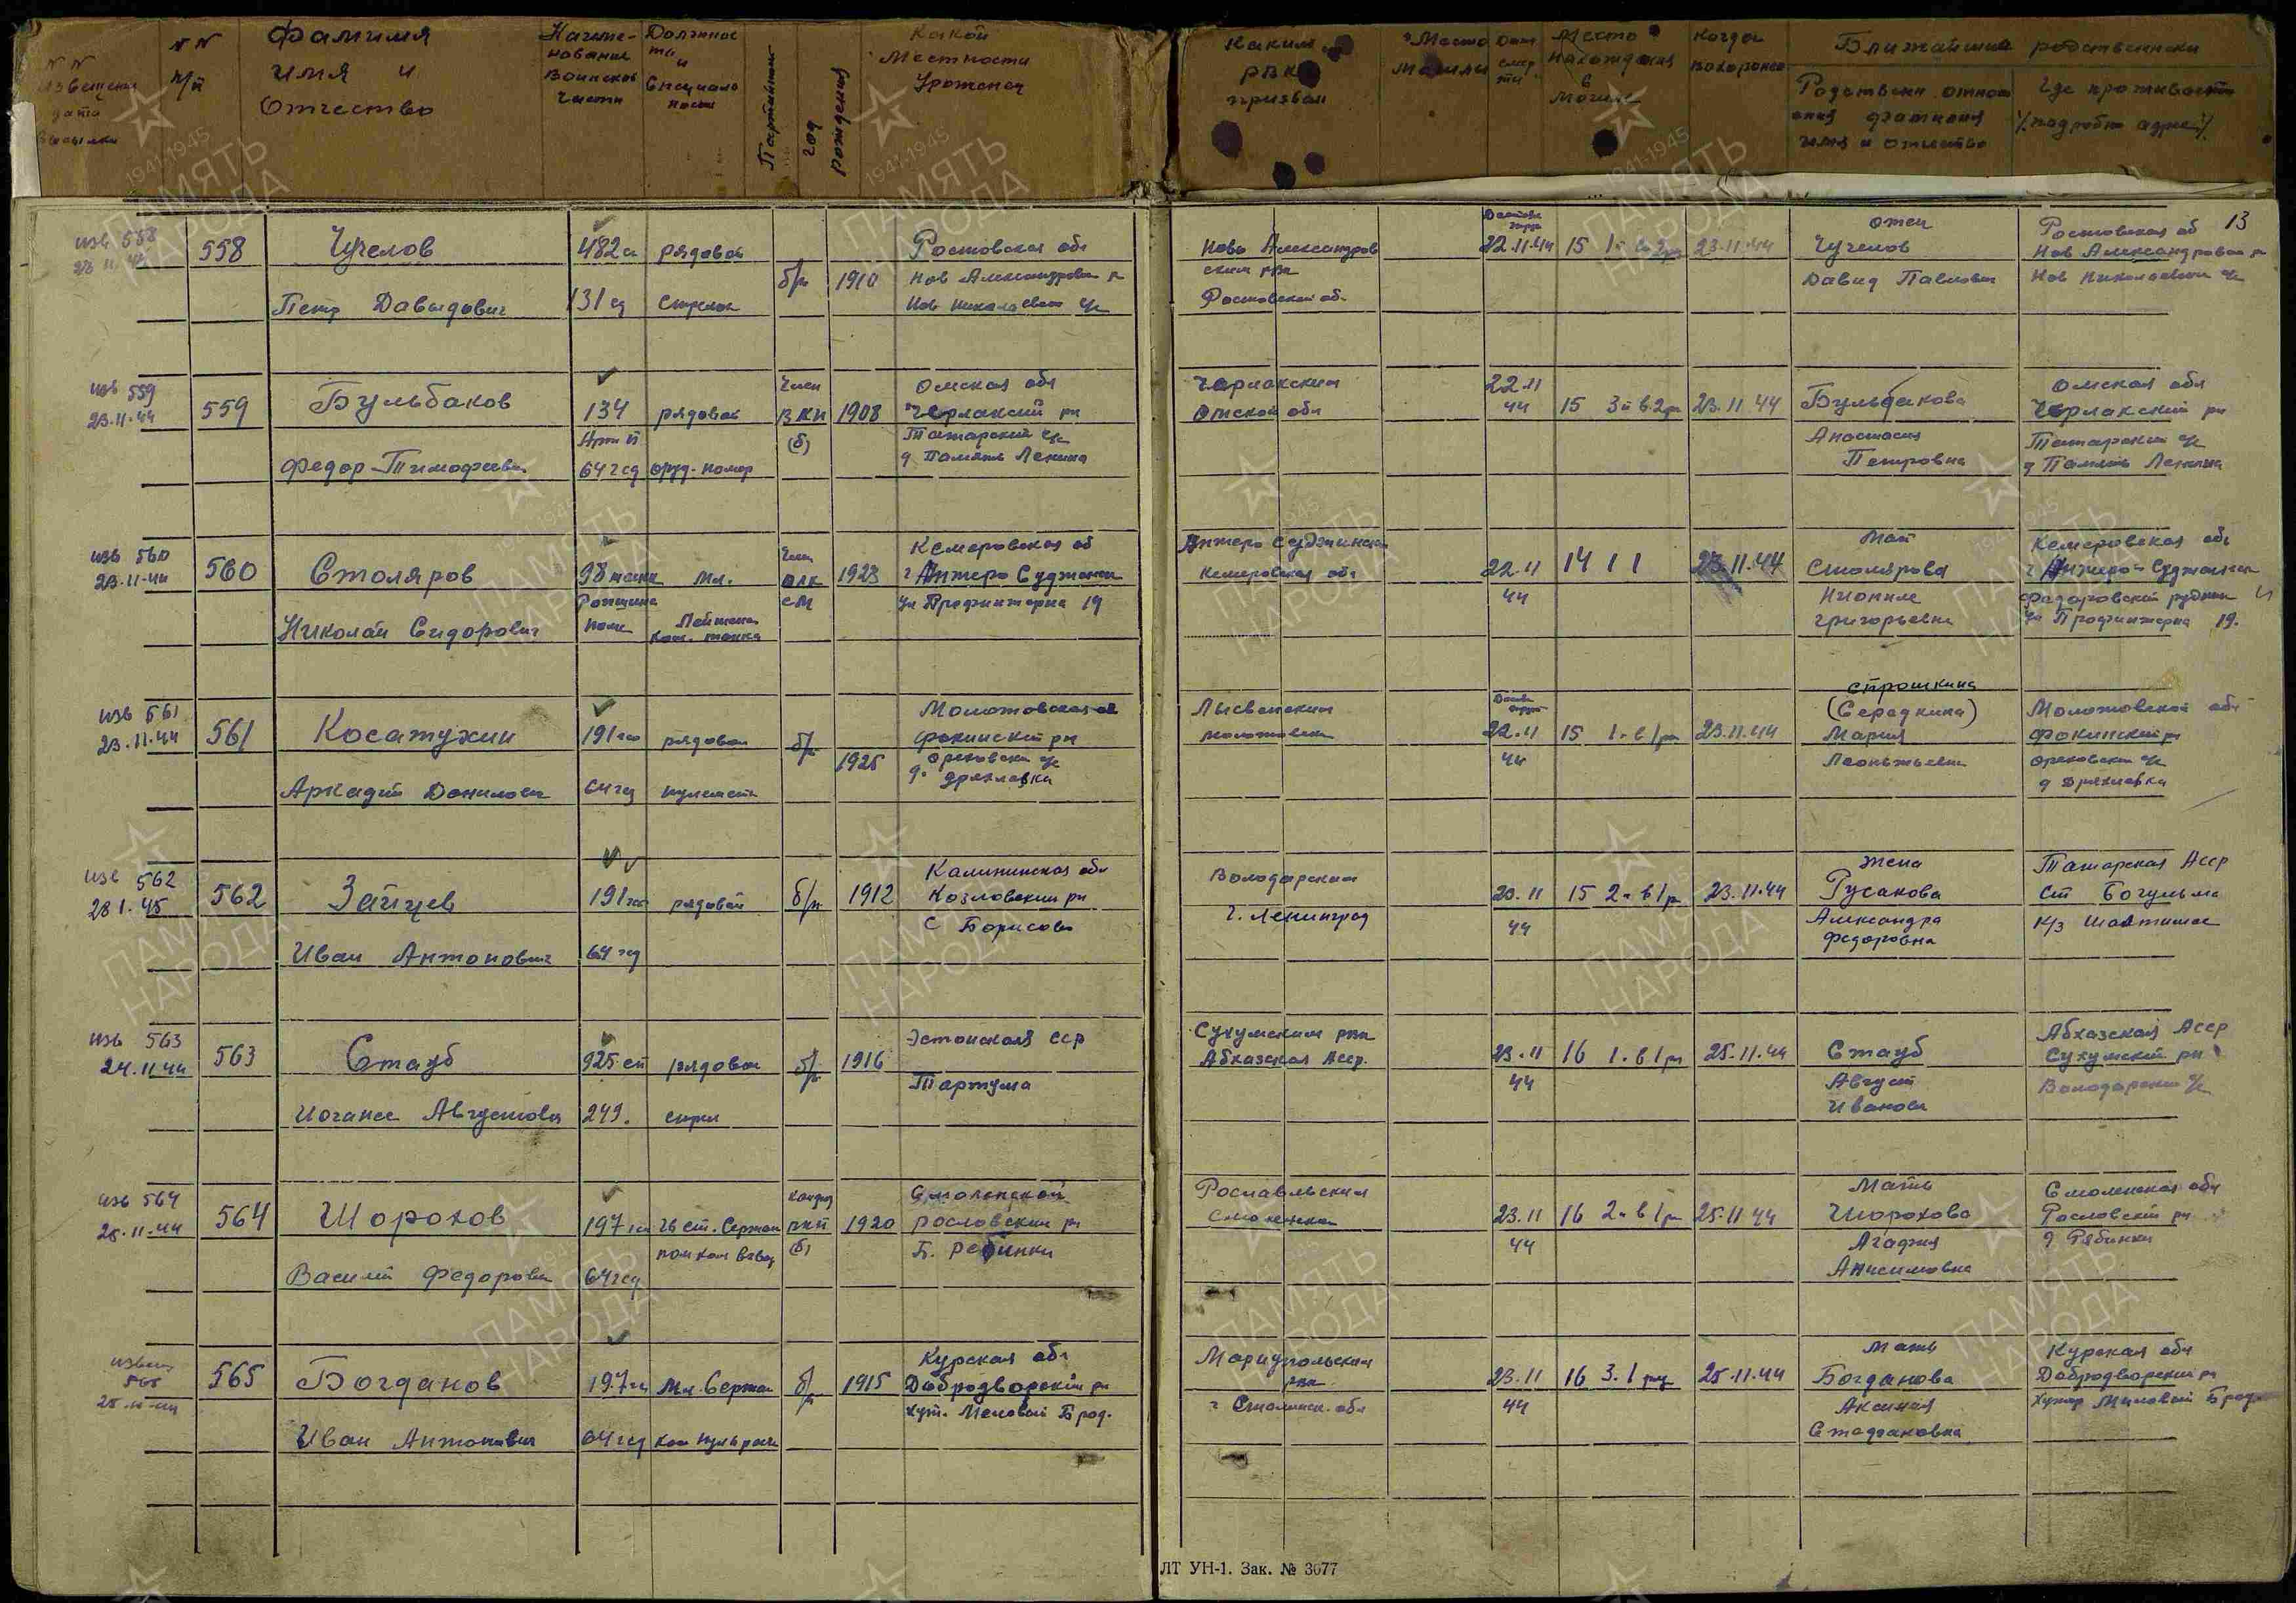 NN извещения дата высылки
NN п/п
Фамилия имя и Отчество
Наиме-нование Воинской части
Должнос ть и Специаль ность
Партийность
год рождения
Какой Местности Уроженец
Каким РВК призван
Место Могилы
Дата смер ти
Место нахождения в Могиле
Когда похоронен
Ближайшие родственники
Родственн. отнош ения фамилия имя и отчество
Где проживает /подробн адрес/
13
изв 558
558 Чучелов 482 сп рядовой б/п 1910 Ростовская обл
Нов Александровск р
Петр Давыдович 131 сд стрелок
Ново Александров
ским рвк
Ростовской об.
22.11.44 15 23.11.44
отец
Чучелов
Давид Павлович
Ростовская об
Нов Александровск р
Нов Николаевск
изв 559
23.11.44
559 Бульбаков 134 рядовой Член ВКП (б) 1908
Арт п
Федор Тимофеевич 64 гсд оруд. номер
Омская обл
Черлакский рн
Татарский
д Память Ленина
Черлакским
Омской обл
22.11
44
15 3й в 2р 23.11.44
Бульбакова
Анастасия
Петровна
Омская обл
Черлакский рн
Татарский
д Память Ленина
изв 560
23.11.44
560 Столяров 98 танк Мл. Член влк см 1923
Николай Сидорович полк Лейтенан ком. танка
Кемеровская об
г Анжеро Судженск
ул Профинтерна 19
Анжеро Судженским
Кемеровская обл
22.11
44
14 1 1 23.11.44
Мат
Столярова
Григорьевна
Кемеровская обл
г Анжеро-Судженск
Федоровский рудник
ул Профинтерна 19.
изв 561
23.11.44
561 Косатухин 191 гсп рядовой б/п 1925
Аркадий Данилович 64 гсд пулеметч
Молотовская об
Фокинский рн
Ореховский
д. Дряхлавка
Лысвенским
Молотовск
22.11
44
15 1. в 1 р 23.11.44
Строшкина
(Середкина)
Мария
Леонтьевна
Молотовской обл
Фокинский р
Ореховский
д Дряхлавка
изв 562
28 1. 45
562 Зайцев 191 гсп рядовой б/п 1912
Иван Антонович 64 гсд
Калининская обл
Козловский рн
С Борисово
Володарским
г. Ленинград
20.11
44
15 2. в 1 р 23.11.44
Жена
Русакова
Александра
Федоровна
Татарская Асср
Ст Богульма
изв 563
24.11.44
563 Стауб 925 сп рядовой б/п 1916
Иоганес Августович 249. стрел
Эстонская сср
Тартума
Сухумским рвк
Абхазская Асср.
23.11
44
16 1. в 1 р 25.11.44
Стауб
Август
Иванович
Абхазская Асср
Сухумский рн
Володарский
изв 564
25.11.44
564 Шорохов 197 гсп Гв ст. Сержан кандид вкп (б) 1920
пом ком взвод
Василий Федорович 64 гсд
Смоленской
Рославский рн
Б. Ребинки
Рославльским
Смоленск
23.11
44
16 2. в 1 р 25.11.44
Мать
Шорохова
Агафия
Анисимовна
Смоленская обл
Рославский рн
д Рябинки
извещ
565
25.11.44
565 Богданов 197 гсп Мл. Сержан б/п 1915
Иван Антонович 64 гсд
Курская обл
Добродворский рн
Хут. Меловой Брод.
Мариупольским
рвк
23.11
44
16 3. 1 р 25.11.44
Мать
Богданова
Аксиния
Стефановна
Курская обл
Добродворский р
Хутор Меловой Брод
ЛТ УН-1. Зак. № 3077